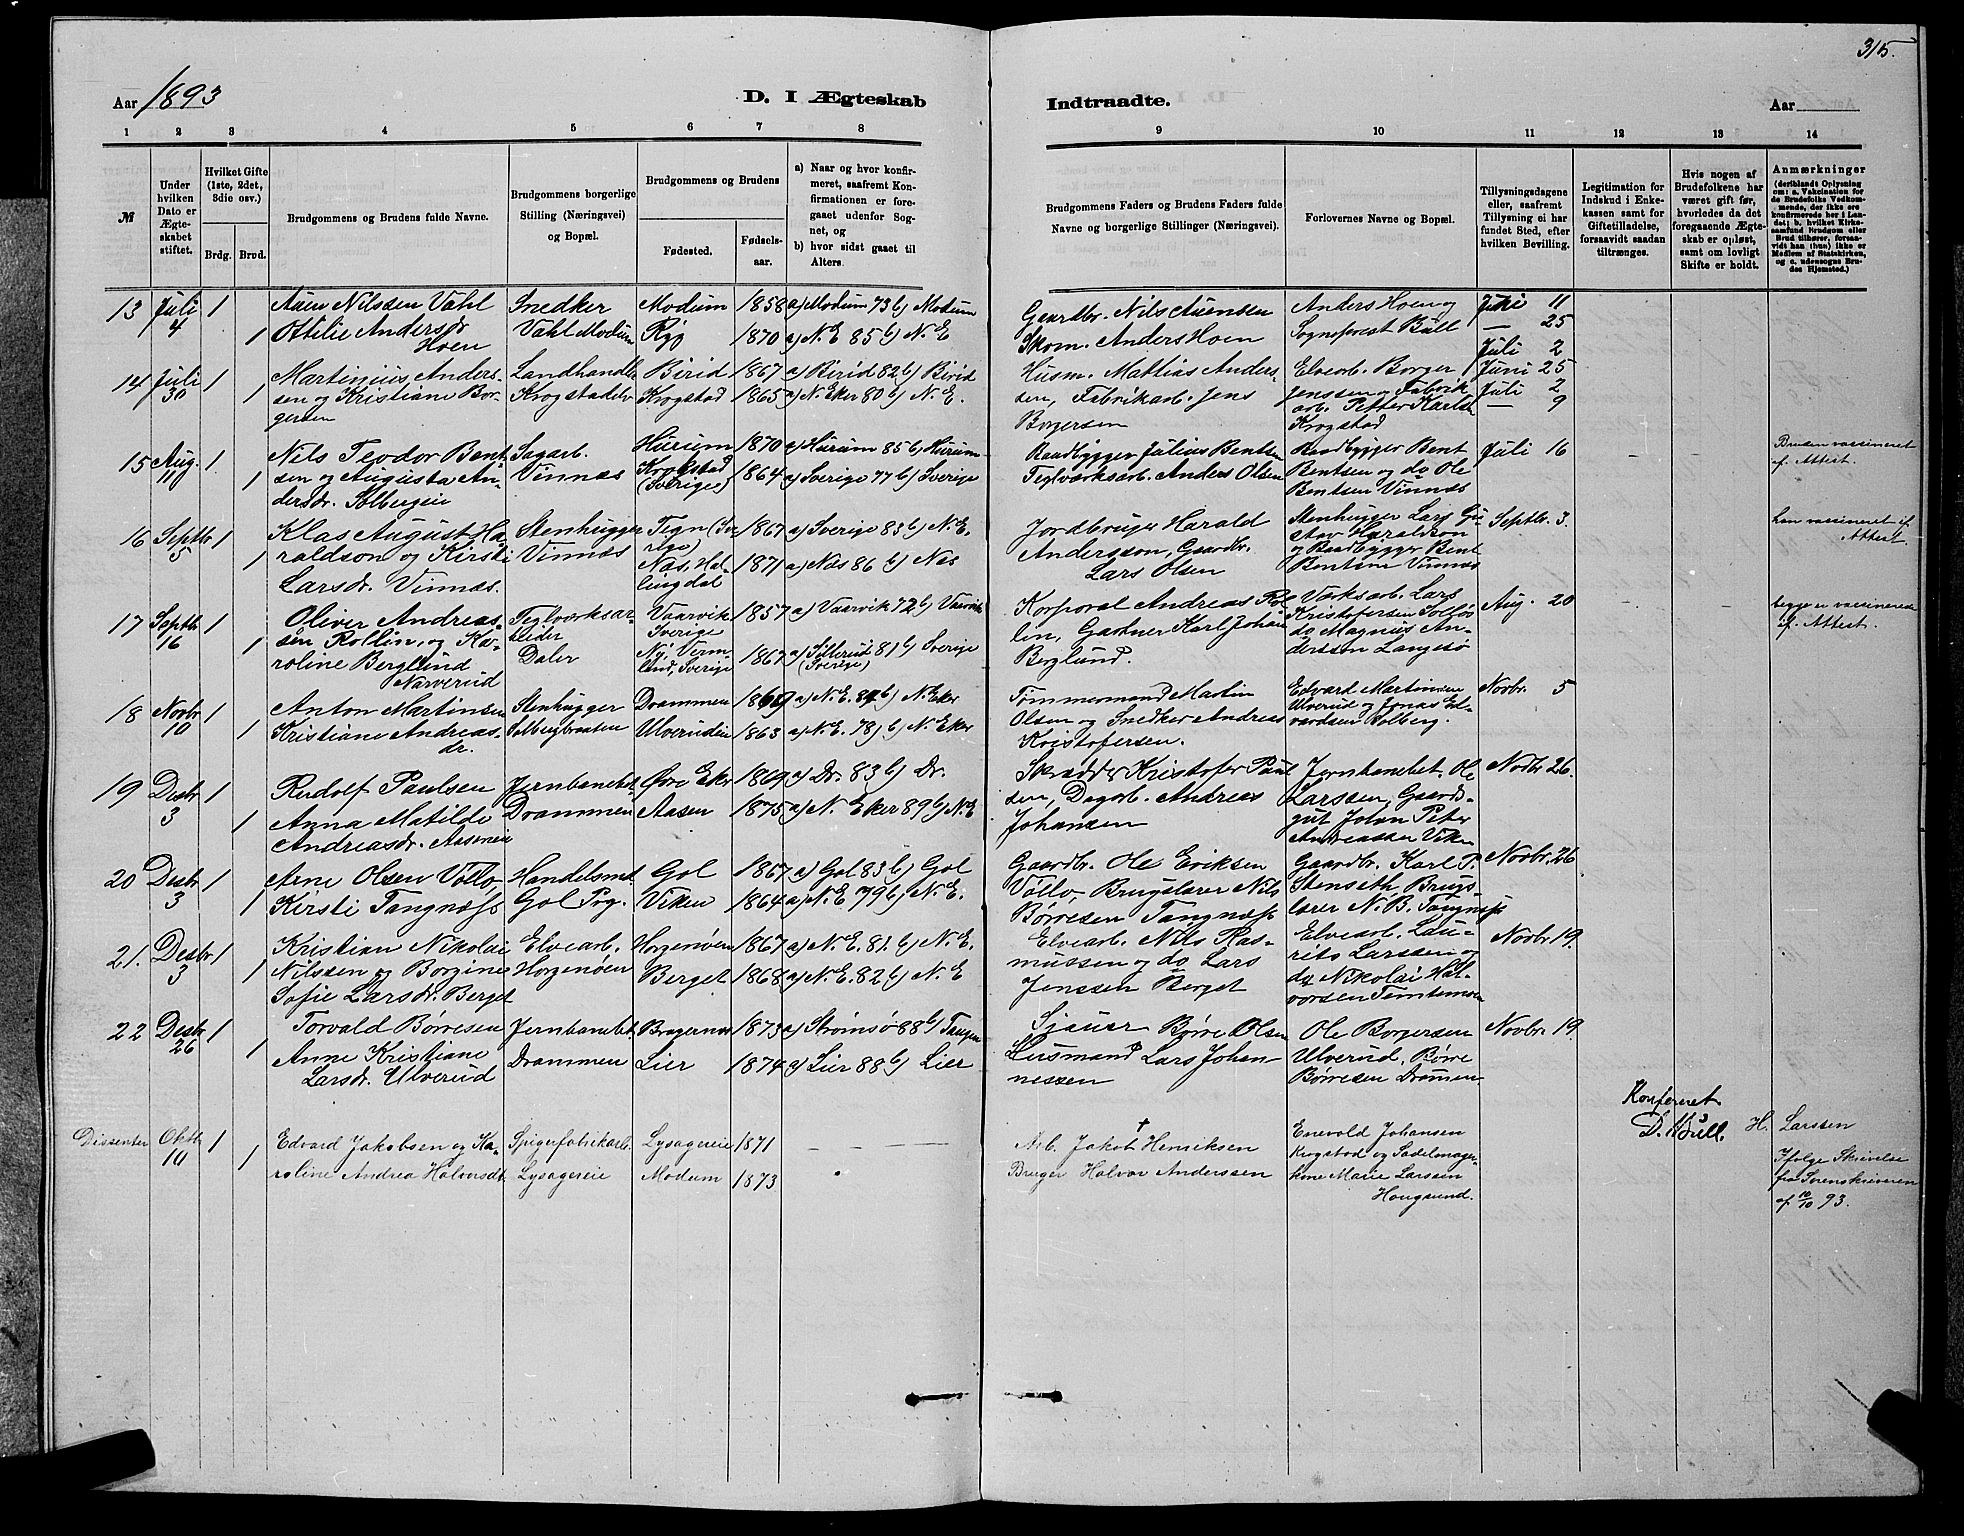 315.
Aar 1893
D. I Ægteskab
Indtraadte.
Aar
1 2 3 4 5 6 7 8
9 10 11 12 13 14
№
Under hvilken Dato er Ægteskabet stiftet.
Hvilket Gifte (1ste, 2det, 3die osv.)
Brdg. Brud.
Brudgommens og Brudens fulde Navne.
Brudgommens borgerlige Stilling (Næringsvei) og Bopæl.
Brudgommens og Brudens
Fødested.
Fødselsaar.
a) Naar og hvor konfirmeret, saafremt Konfirmationen er foregaaet udenfor Sognet, og
b) hvor sidst gaaet til Alters.
Brudgommens Faders og Brudens Faders fulde Navne og borgerlige Stillinger (Næringsvei).
Forlovernes Navne og Bopæl.
Tillysningsdagene eller, saafremt Tillysning ei har fundet Sted, efter hvilken Bevilling.
Legitimation for Indskud i Enkekassen samt for Giftetilladelse, forsaavidt saadan tiltrænges.
Hvis nogen af Brudefolkene har været gift før, hvorledes da det foregaaende Ægteskab er opløst, samt om lovligt Skifte er holdt.
Anmærkninger
(deriblandt Oplysning om: a. Vakcination for de Brudefolks Vedkommende, der ikke ere konfirmerede her i Landet; b. hvilket Kirkesamfund Brudgom eller Brud tilhører, forsaavidt han (hun) ikke er Medlem af Statskirken, og c. udensogns Brudes Hjemsted.)
13 Juli 4 1 Auen Nilssen Vahl Snedker Modum 1858 a) Modum 73 b) Modum
1 Ottilie Andersdr. Hoen Vahl Modum Rys 1870 a) N.E 85 b) N.E
Gaardbr. Nils Auensen
Skom. Anders Hoen
Anders Hoen og
Sogneprest Bull
Juni 11
— 25
Juli 2
14 Juli 30 1 1 Martinius Anderssen og Kristiane Borgersen
Landhandler Krogstadelv
Birid 1867 a) Birid 82 b) Birid
Krogstad 1865 a) N. Eker 80 b) N.E.
Husm. Mathias Anderssen, Fabrikarb. Jens Borgersen
Elvearb. Borger Jenssen og Fabrikarb. Petter Karlsen Krogstad
Juni 25
Juli 2
— 9
15 Aug. 11 1 1 Nils Teodor Bentsen og Augusta Andersdr. Solbergeie
Sagarb. Vinnæs
Hurum 1870 a) Hurum 85 b) Hurum
Krogstad (Sverige) 1864 a) Sverige 77 b) Sverige
Baadbygger Julius Bentsen
Teglværksarb. Anders Olsen
Baadbygger Bent Bentsen og do Ole Bentsen Vinnæs
Juli 16
Bruden vaccineret
if. Attest.
16 Septbr 5 1 1 Klas August Haraldson og Kirsti Larsdr. Vinnæs.
Stenhugger Vinnæs
Tign (Sverige) 1867 a) Sverige 83 b) N.E.
Næs, Hallingdal 1871 a) Næs 86 b) Næs
Jordbruger Harald Andersson, Gaardbr. Lars Olsen
Stenhugger Lars Gustav Haraldson og Baadbygger Bent Bentsen Vinnæs
Septbr. 3.
han vaccineret if.
Attest.
17 Septbr 16 1 1 Oliver Andreassen Rollin, og Karoline Berglund Narverud
Teglværksarbeider Daler
Vaarvik Sverige 1857 a) Vaarvik 72 b) Vaarvik
Ny, Vermland, Sverige 1867 a) Silterud 81 b) Sverige (Sverige)
Korporal Andreas Rollin, Gartner Karl Johan Berglund.
Værksarb. Lars Kristofersen Solløs do Magnus Anderssen Langesø
Aug. 20
begge er vaccinerede
if. Attest.
18 Novbr 10 1 1 Anton Martinsen
Kristiane Andreasdr.
Stenhugger Solbergbraaten
Drammen 1869 a) N.E. 84 b) N. Eker
Ulverudeie 1863 a) N.E. 78 b) N. Eker
Tømmermand Martin Olsen og Snedker Andreas Kristofersen.
Edvard Martinsen Ulverud og Jonas Edvardsen Solberg.
Novbr. 5
19 Desbr 3 1 1 Rudolf Paulsen
Anna Matilde Andreasdr. Aasmeie
Jernbanebet. Drammen
Øvre Eker 1869 a) Dr. 83 b) Dr.
Aasen 1875 a) N. Eker 89 b) N.E
Skrædder Kristofer Paulsen, Dagarb. Andreas Johansen
Jernbanebet. Ole Larssen, Gaardsgut Johan Peter Andreassen Viken
Novbr 26.
20 Desbr 3 1 1 Arne Olsen Vollo
Kirsti Tangnæss
Handelsmd. Gol Prg.
Gol 1867 a) Gol 83 b) Gol
Viken 1864 a) N.E 79 b) N.E.
Gaardbr. Ole Eriksen Vollo, Brugslærer Nils Børresen Tangnæss
Gaardbr. Karl P. Stenseth, Brugslærer N.B. Tangnæss
Novbr. 26
21. Desbr 3 1 1 Kristian Nikolai Nilssen og Borgine Sofie Larsdr. Berget
Elvearb. Horgenøen
Horgenøen 1867 a) N.E. 81. b) N.E.
Berget 1868 a) N.E. 82 b) N.E
Elvearb. Nils Rasmussen og do Lars Jenssen Berget
Elvearb. Laurits Larssen og do Nikolai Halvorsen Temtemoen
Novbr. 19.
22 Desbr 26 1 1 Torvald Børresen
Anne Kristiane Larsdr. Ulverud
Jernbanebet. Drammen
Bragernes 1873 a) Strømsø 88 b) Tangen
Lier 1874 a) Lier 88 b) Lier
Sjauer Børre Olsen
Husmand Lars Johannessen
Ole Borgersen Ulverud, Børre Børresen Drammen
Novbr. 19.
Konfereret
D. Bull.
Dissenter Oktbr 10 1 1 Edvard Jakobsen og Karoline Andrea Halvorsdt.
Spigerfabrikarb. Lysagereie
Lysagereie 1871 — —
Modum 1873
Arb. Jakob Henriksen †
Bruger Halvor Anderssen
Enevold Johansen Krogstad og Sadelmagerkone Marie Larssen Hougsund.
H. Larssen
Ifølge Skrivelse
fra Sorenskriveren
af 10/10 93.